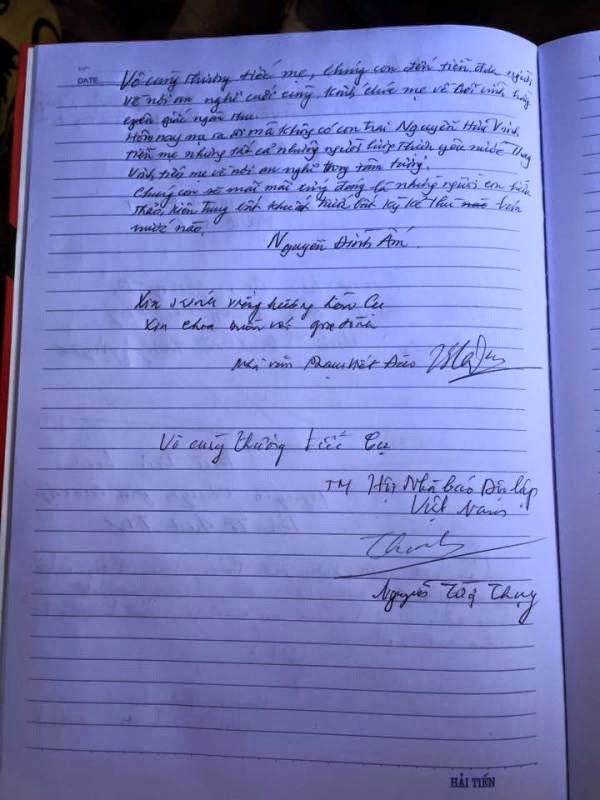 DATE
Vô cùng thương tiếc mẹ, chúng con đến tiễn đưa người
về nơi an nghỉ cuối cùng kính chúc mẹ về cõi vĩnh hằng
yên giấc ngàn thu.
Hôm nay mẹ ra đi mà không có con trai Nguyễn Hữu Vinh
tiễn mẹ nhưng tất cả những người lương thiện yêu nước thay
Vinh tiễn mẹ về nơi an nghỉ trong tâm tưởng.
Chúng con sẽ mãi mãi xứng đáng là những người con hiếu
thảo, kiên trung bất khuất trước bất kỳ kẻ thù nào bán
nước nào.
Nguyễn Đình Ấm
Xin vĩnh viếng hương hồn Cụ
Xin chia buồn với gia đình
Nhà văn Phạm Viết Đào
Vô cùng thương tiếc Cụ
TM Hội Nhà báo Độc lập
Việt Nam
Nguyễn Tường Thụy
HẢI TIẾN